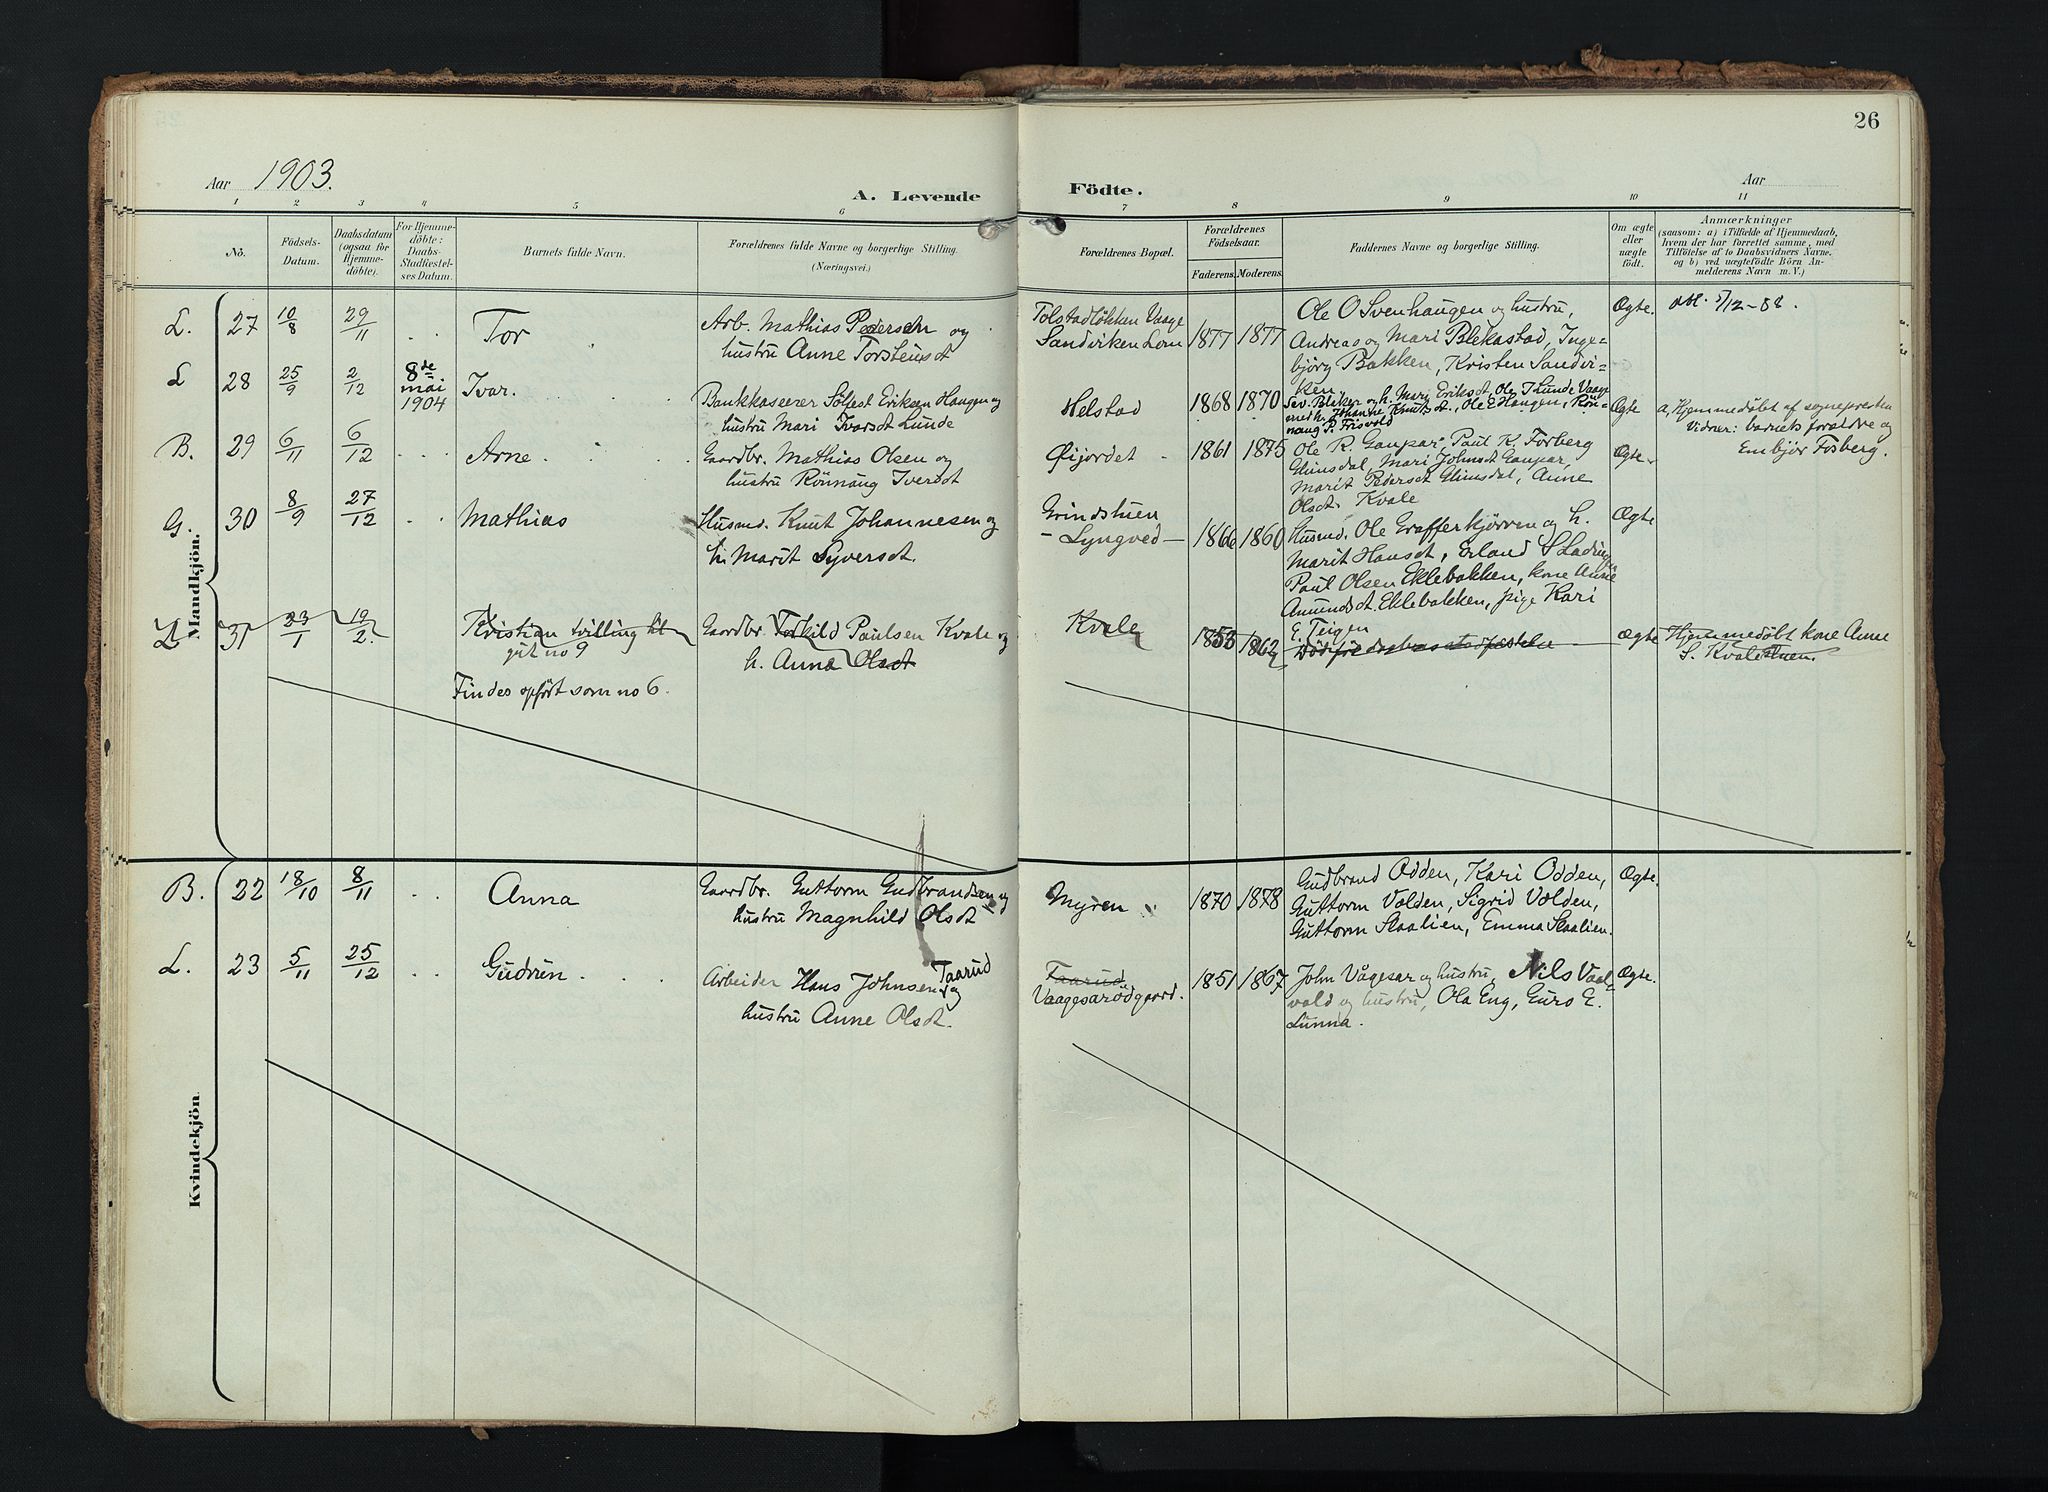 26
Aar 1903.
A. Levende Födte.
Aar
1 2 3 4 5 6 7 8 9 10 11
No.
Födsels-Datum.
Daabsdatum (ogsaa for Hjemme-döbte).
For Hjemme-döbte: Daabs-Stadfæstel-ses Datum.
Barnets fulde Navn.
Forældrenes fulde Navne og borgerlige Stilling. (Næringsvei.)
Forældrenes Bopæl.
Forældrenes Födselsaar.
Faderens. Moderens.
Faddernes Navne og borgerlige Stilling.
Om ægte eller uægte födt.
Anmærkninger
(saasom: a) i Tilfælde af Hjemmedaab, hvem der har forrettet samme, med Tilföielse af to Daabsvidners Navne. og b) ved uægtefödte Börn An-melderens Navn m. V.)
Mandkjön.
L. 27 10/8 29/11 Tor
Arb. Mathias Pedersen og
hustru Anne Torsteinsdt
Tolstadløkken Vaage
Sandviken Lom
1877 1877
Ole O Svenhaugen og hustru,
Andreas og Mari Blekastad, Inge-
bjørg Bakken, Kristen Sandvi-
ken
Ægte.
L 28 25/9 2/12 8de mai 1904 Ivar.
Bankkasserer Sølfest Eriksen Haugen og
hustru Mari Ivarsdt Lunde
Helstad
1868 1870
Sev. Blaker og h. Mary Eriksdt, Ole I Lunde Vaage
med h. Johanne Knutsdt., Ole E Haugen, Røn-
naug P. Frisvold
Ægte
a, Hjemmedøbt af sognepresten
Vidner: barnets forældre og
Embjør Fosberg.
B. 29 6/11 6/12 Arne
Gaardbr. Mathias Olsen og
hustru Rönnaug Iversdt
Øijordet
1861 1875
Ole R. Gaupar Paul K. Forberg
Glimsdal, Mari Johnsdt Gaupar,
Marit Pedersdt Glimsdal, Anne
Olsdt. Kvale
Ægte
G. 30 8/9 27/12 Mathias
Husmd. Knut Johannesen og
h. Marit Syversdt.
Grindstuen
- Lyngved -
1866 1860
Husmd. Ole Grafferkjørren og h.
Marit Hansdt, Erland S Lading
Paul Olsen Eklebakken, kone Anne
Amundsdt. Eklebakken, pige Kari
E. Teigen
Ægte
L 31 23/1 19/2. Kristian tvilling til
git no 9
Findes opført som no 6.
Gaardbr. Torkild Paulsen Kvale og
h. Anna Olsdt
Kvale
1855 1862
Ægte
Hjemmedøbt kone Anne
S. Kvalestuen.
Kvindekjön.
B. 22 18/10 8/11 Anna
Gaardbr. Guttorm Gudbrandsen og
hustru Magnhild Olsdt
Myren
1870 1878
Gudbrand Odden, Kari Odden,
Guttorm Volden, Sigrid Volden,
Guttorm Skaalien, Emma Skaalien.
Ægte.
L. 23 5/11 25/12 Gudrun
Arbeider Hans Johnsen Taarud og
hustru Anne Olsdt.
Taarud
Vaagesarødgaard.
1851 1867
John Vågesar og hustru, Nils Vaal-
vold og hustru, Ola Eng, Guro E.
Lunna.
Ægte.